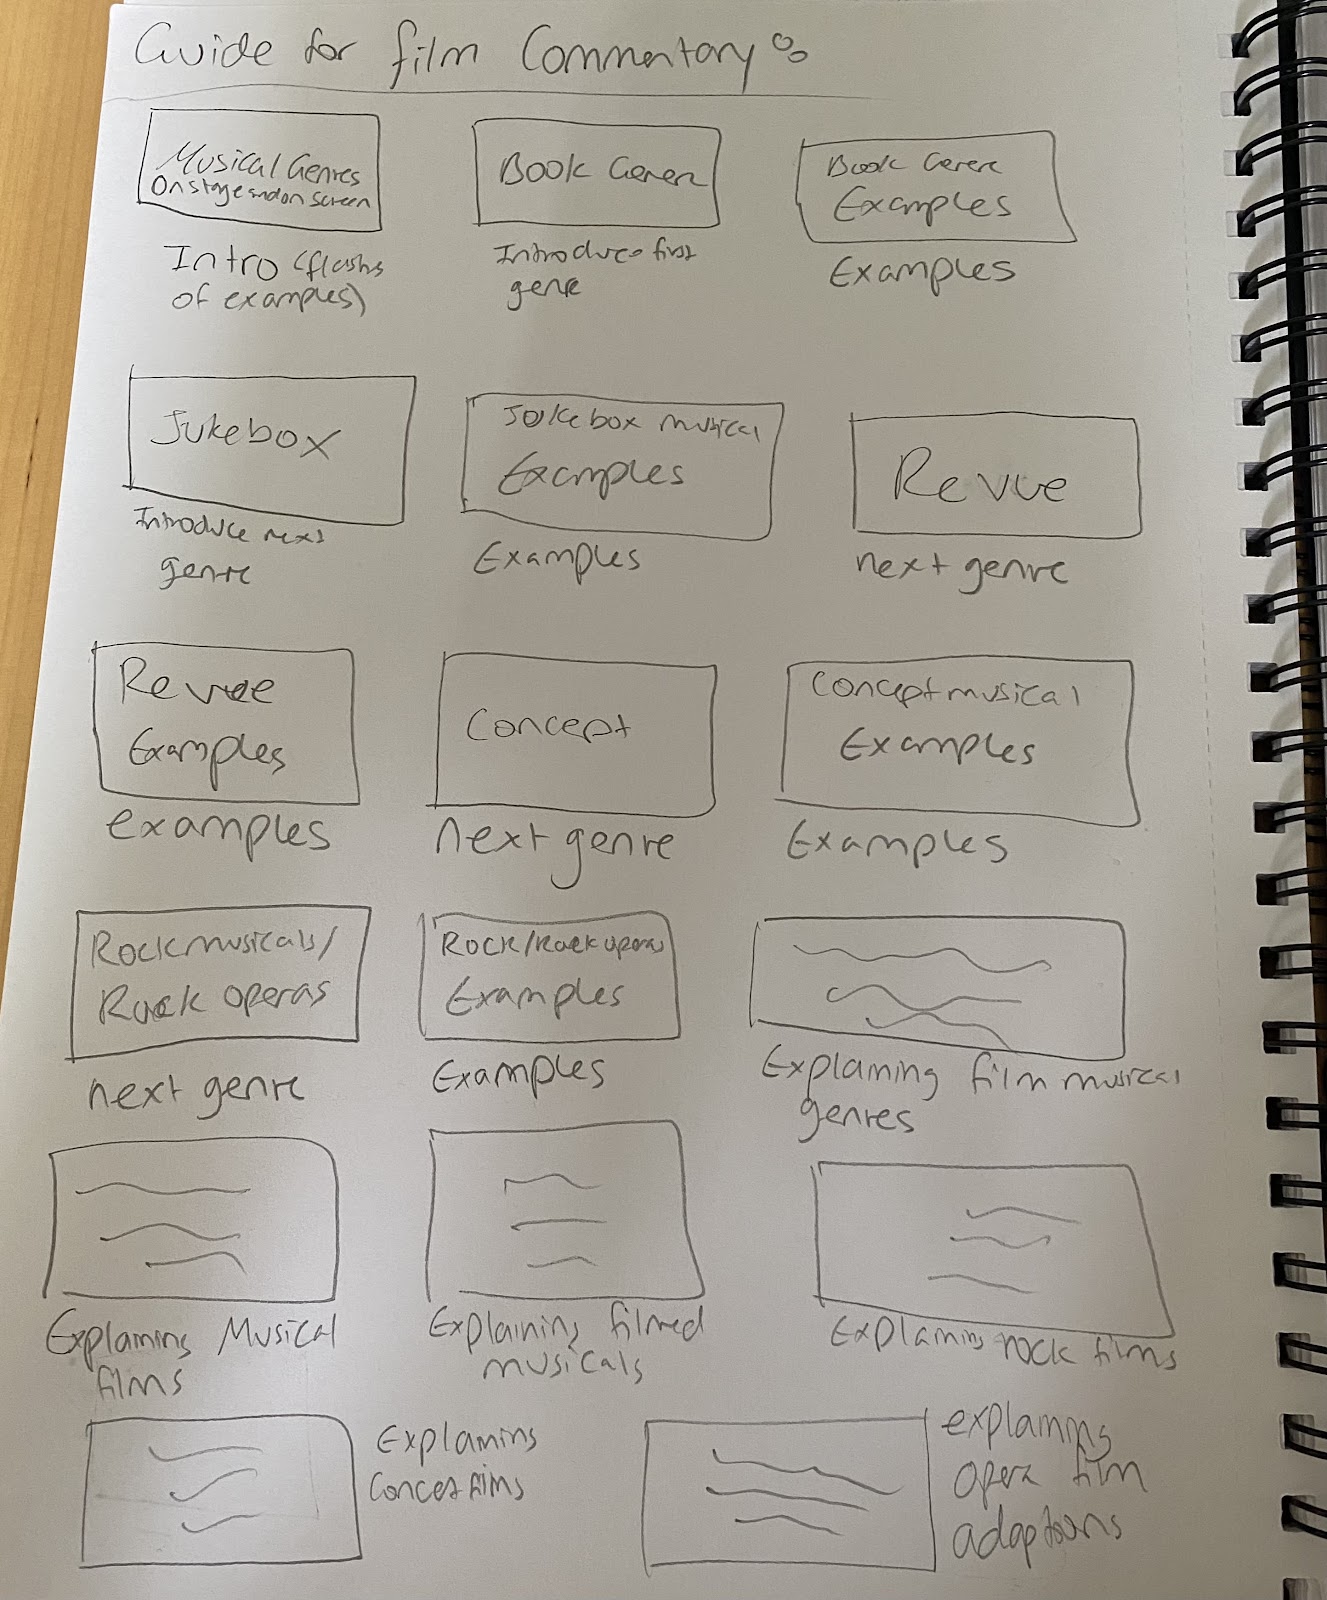 Guide for film Commentary:
Musical Genres
On stage and on screen
Intro (flashs
of examples)
Book Genere
Introduce first
genre
Book Genere
Examples
Examples
Jukebox
Introduce next
genre
Jukebox musical
Examples
Examples
Revue
next genre
Revue
Examples
examples
Concept
next genre
Concept musical
Examples
Examples
Rock musicals/
Rock operas
next genre
Rock/Rock operas
Examples
Examples
Explaining film musical
genres
Explaining Musical
films
Explaining filmed
musicals
Explaining rock films
Explaining
films
explaining
opera film